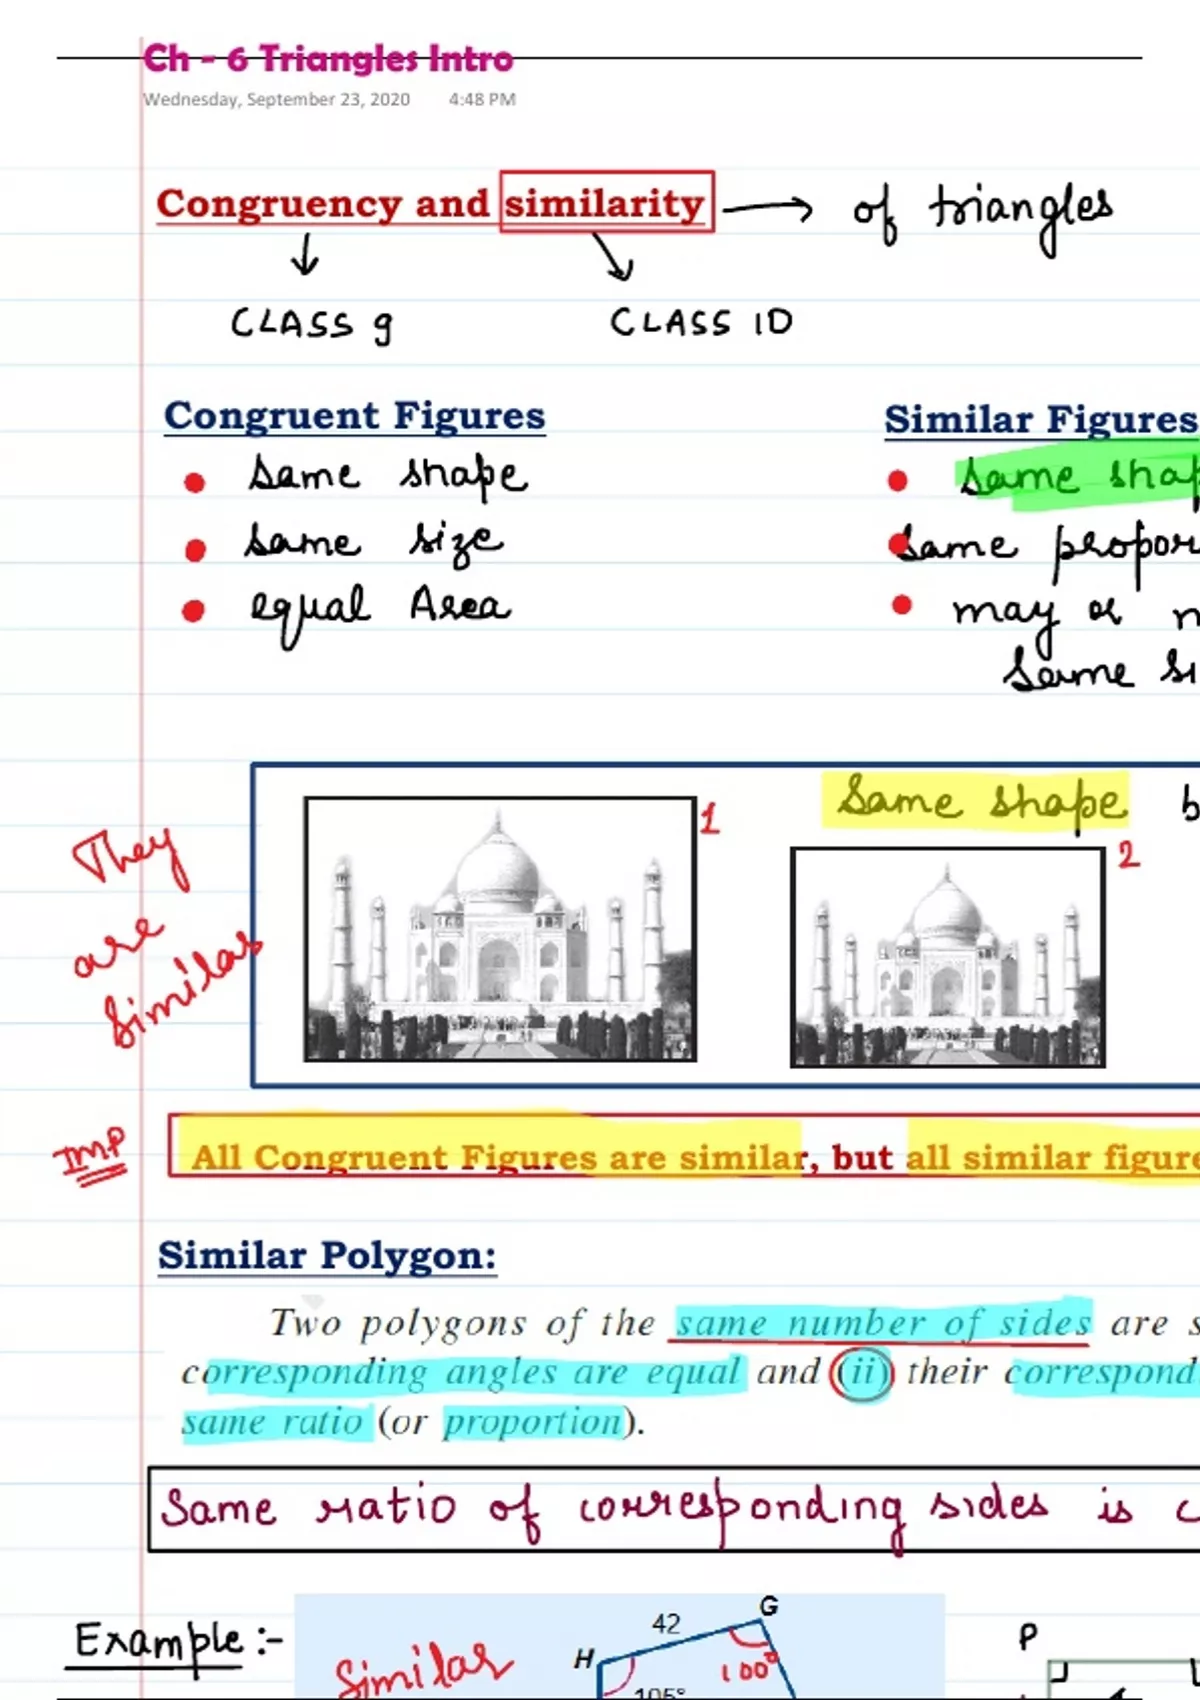 Ch - 6 Triangles Intro
Wednesday, September 23, 2020 4:48 PM
Congruency and similarity → of triangles
CLASS 9 CLASS 10
Congruent Figures
same shape
same size
equal Area
Similar Figures
same shap
same propor
may or
same si
They
are
similar
1
Same shape b
2
IMP
All Congruent Figures are similar, but all similar figure
Similar Polygon:
Two polygons of the same number of sides are s
corresponding angles are equal and (ii) their correspond
same ratio (or proportion).
Same ratio of corresponding sides is c
Example :-
Similar
42
G
H
100°
105°
P